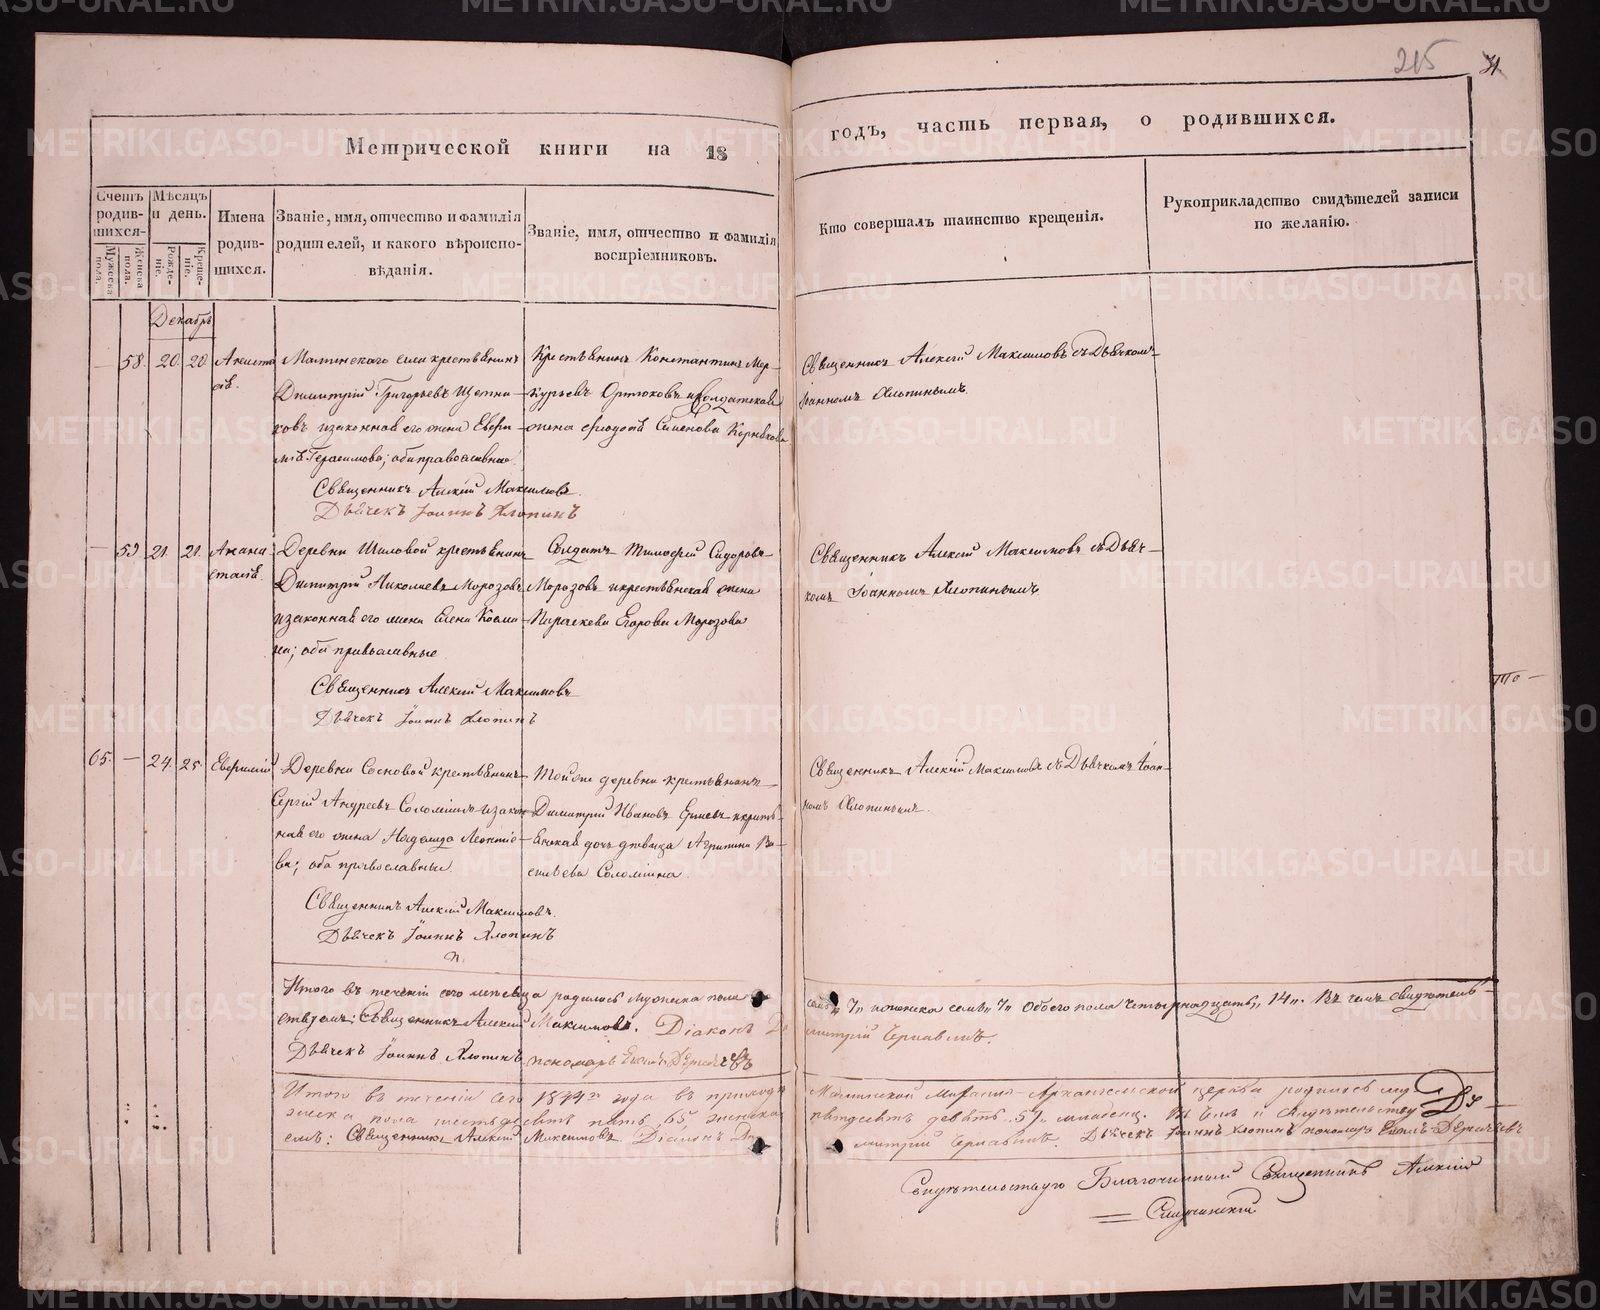 215
Метрической книги на 18
годъ, часть первая, о родившихся.
Счетъ родив-шихся.
Мужеска пола.
Женска пола.
Мѣсяцъ и день.
Рожде-ніе.
Креще-ніе.
Имена родив-шихся.
Званіе, имя, отчество и фамилія
родителей, и какого вѣроиспо-
вѣданія.
Званіе, имя, отчество и фамилія
воспріемниковъ.
Кто совершалъ таинство крещенія.
Рукоприкладство свидѣтелей записи
по желанію.
Декабрь
— 58. 20. 20. Анаста
сія.
крестьянинъ
Димитрій Григорьевъ Щепко-
ковъ изаконная его жена Евфи-
мія Герасимова; оба православные
Священникъ Алексій Максимовъ
Дьячекъ Іоаннъ Хлопинъ
Крестьянинъ Константинъ Мер-
курьевъ
жена Семенова
Священникъ Алексій Максимовъ съ Дьячкомъ
Іоанномъ Хлопинымъ.
— 59 21. 21.
Деревни Шиловой крестьянинъ
Димитрій Николаевъ Морозовъ
изаконная его жена Елена Косми-
на; оба православные
Священникъ Алексій Максимовъ
Дьячекъ Іоаннъ Хлопинъ
Солдатъ Тимофей Сидоровъ
Морозовъ икрестьянская жена
Параскева Егорова Морозова
Священникъ Алексій Максимовъ съ Дьяч-
комъ Іоанномъ Хлопинымъ
65. — 24. 25. Евфимій
Деревни Сосновой крестьянинъ
Сергій Андреевъ Соломеинъ изакон
ная его жена Надежда Леонтіе-
ва; оба православные.
Священникъ Алексій Максимовъ.
Дьячекъ Іоаннъ Хлопинъ
Той же деревни крестьянинъ
Димитрій Ивановъ крестъ-
янская дочь дѣвица Агрипина Ва-
сильева Соломеина.
Священникъ Алексій Максимовъ съ Дьячкомъ Іоан-
номъ Хлопинымъ.
Итого въ теченіи сего мѣсяца родилось мужеска пола семь „7„ женска семь „7„ Обоего пола четырнадцать „14„. Въ чемъ свидѣтель-
ствуемъ: Священникъ Алексій Максимовъ. Діаконъ Димитрій Чернавинъ.
Дьячекъ Іоаннъ Хлопинъ пономарь
Итого въ теченіи сего 1844го года въ приходѣ Архангельской церкви родилось му
жеска пола шестьдесятъ пять, 65, женска пятьдесятъ девять, 59, младенц. Въ чемъ и свидѣтельству
емъ: Священникъ Алексій Максимовъ Діаконъ Димитрій Чернавинъ. Дьячекъ Іоаннъ Хлопинъ пономарь
Свидѣтельствую Благочинный Священникъ Алексій
METRIKI.GASO-URAL.RU